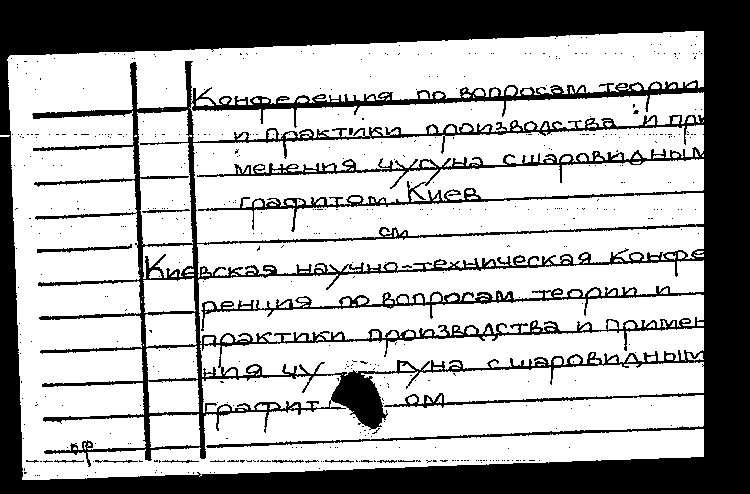 Конференция по вопросам теории
и практики производства и при
менения чугуна с шаровидным
графитом. Киев
см
Киевская научно-техническая конфе
ренция по вопросам теории и
практики производства и примен
ния чу гуна с шаровидным
графит ом